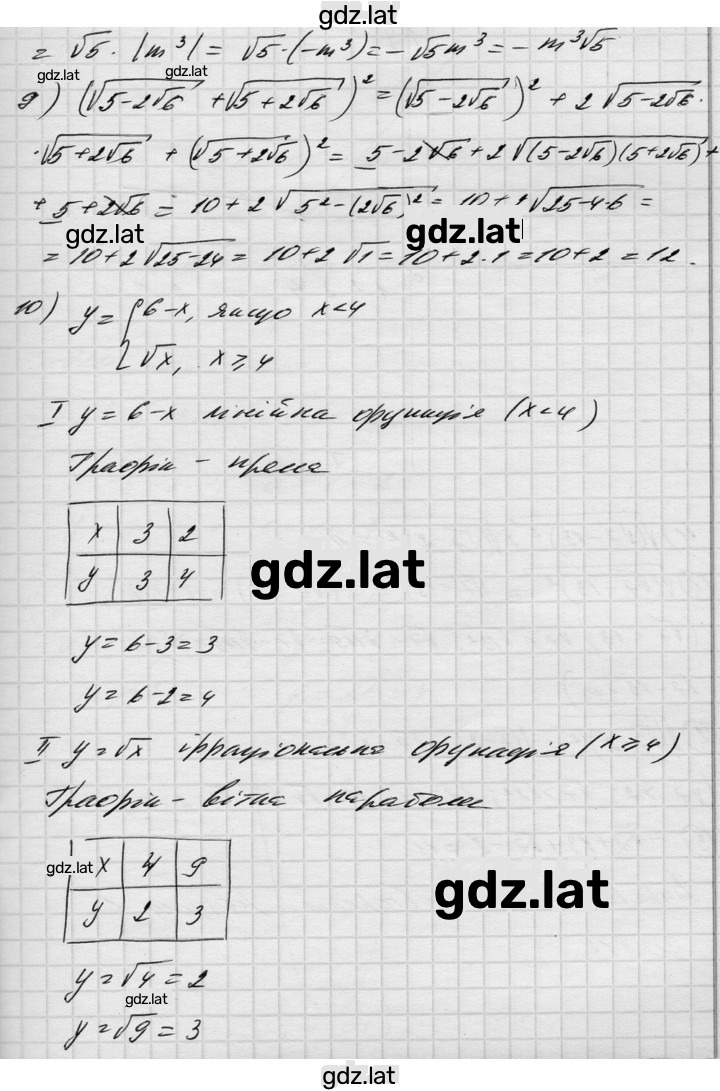 gdz.lat
= √5 · |m³| = √5·(-m³) = -√5m³ = -m³√5
gdz.lat gdz.lat
9) (√(5-2√6) + √(5+2√6))² = (√(5-2√6))² + 2√(5-2√6)·
·√(5+2√6) + (√(5+2√6))² = 5-2√6+2√((5-2√6)(5+2√6)) +
+ 5+2√6 = 10+2√(5²-(2√6)²) = 10+2√(25-4·6) =
gdz.lat gdz.lat
= 10+2√(25-24) = 10+2√1 = 10+2·1 = 10+2 = 12.
10) y = { 6-x, якщо x<4
√x, x ⩾ 4
I y = 6-x лінійна функція (x<4)
Графік - пряма
x 3 2
y 3 4
gdz.lat
y = 6-3 = 3
y = 6-2 = 4
II y = √x ірраціональна функція (x ⩾ 4)
Графік - вітка параболи
gdz.lat x 4 9
y 2 3
gdz.lat
y = √4 = 2
gdz.lat
y = √9 = 3
gdz.lat